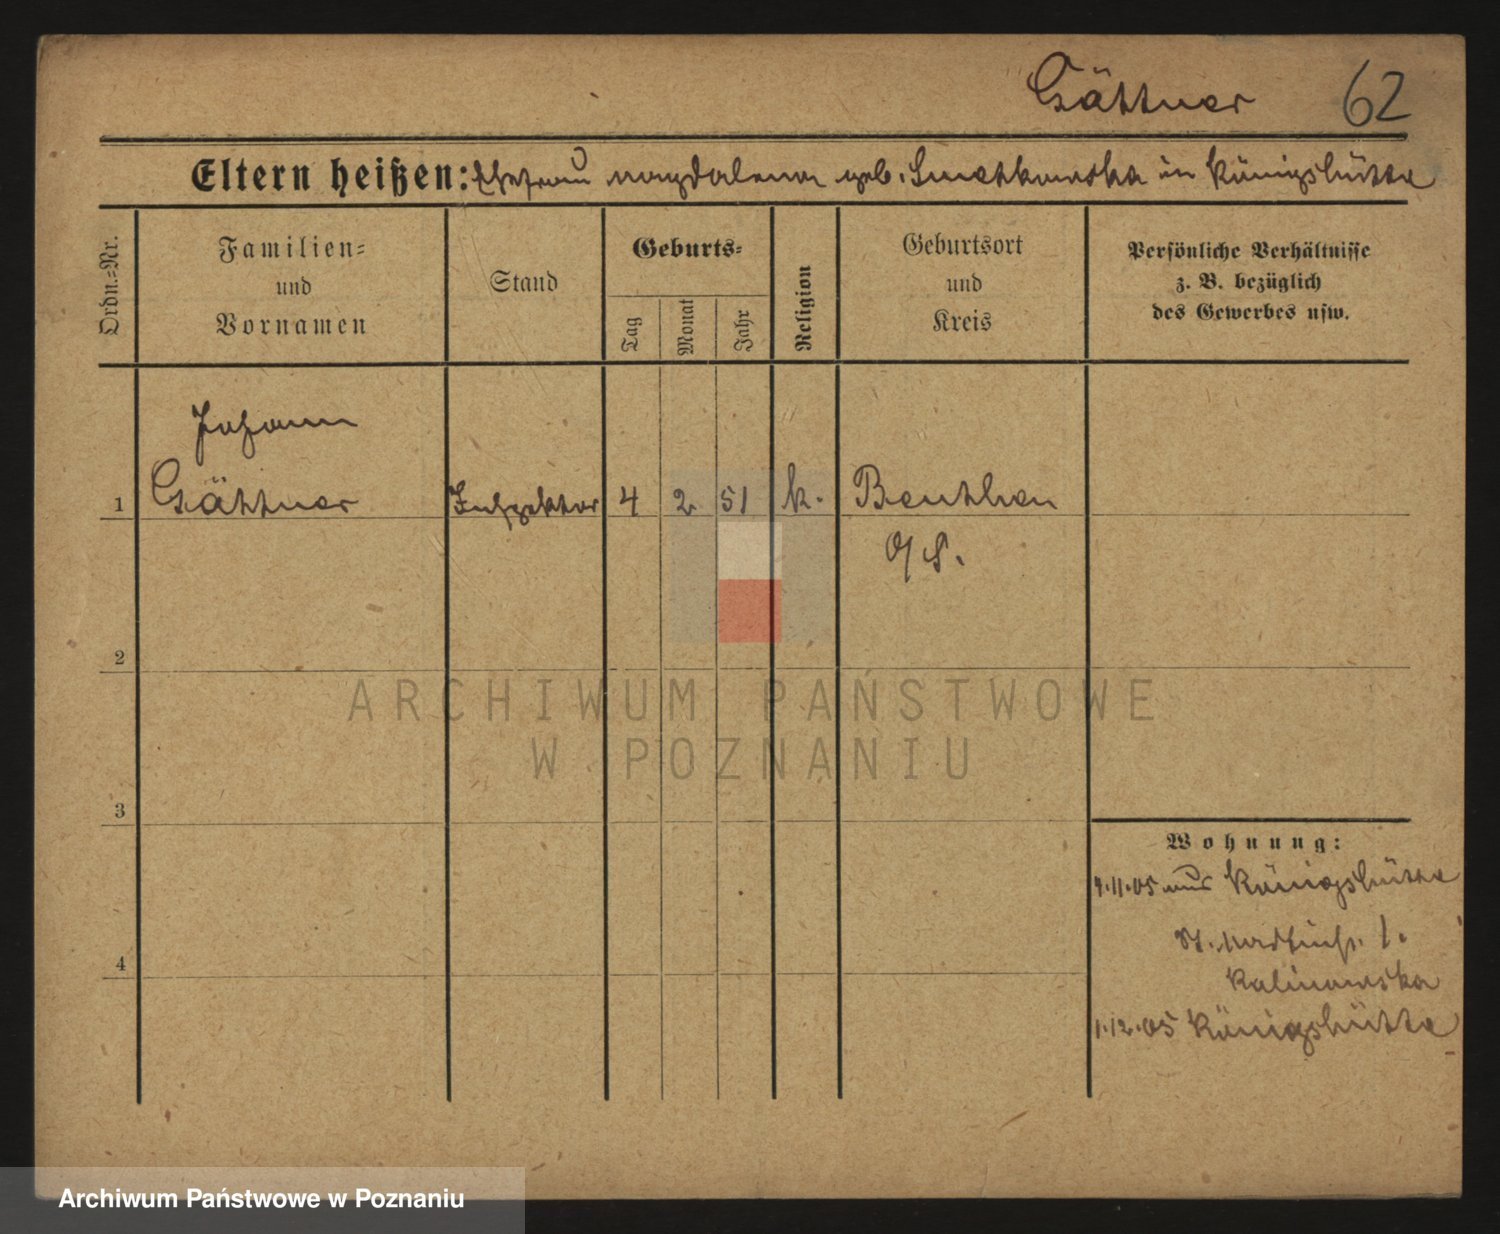 Gättner 62
Eltern heißen: Ehefrau Magdalena geb. Smatkowska in Königshütte
Ordn.=Nr.
Familien=
und
Vornamen
Stand
Geburts=
Tag
Monat
Jahr
Religion
Geburtsort
und
Kreis
Persönliche Verhältnisse
z. B. bezüglich
des Gewerbes usw.
Johann
1 Gättner Inspektor 4 2 51 k. Beuthen
O/S.
2
3
4
Wohnung:
11.05 aus Königshütte
St. Martinstr. 1.
Kalinowska
1.12.05 Königshütte
ARCHIWUM PAŃSTWOWE
W POZNANIU
Archiwum Państwowe w Poznaniu